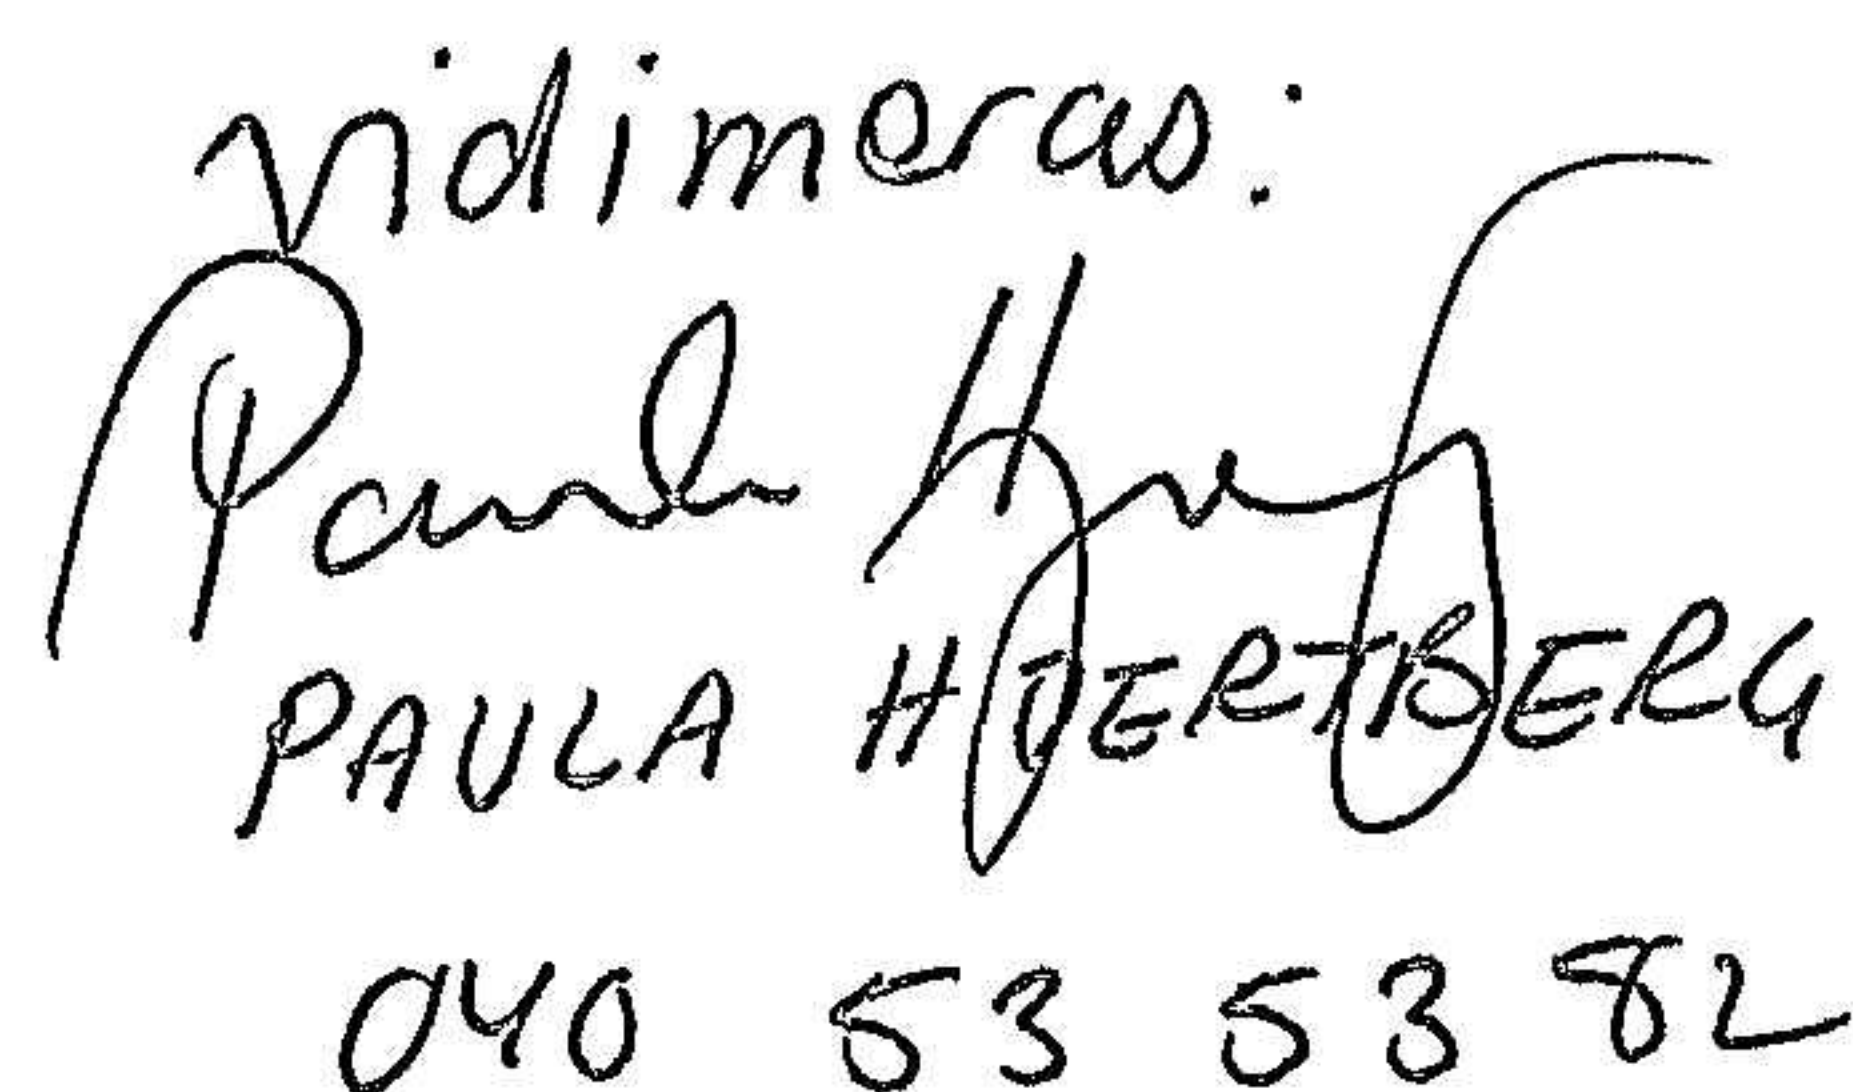 Vidimeras:
Paula Hjertberg
PAULA HJERTBERG
040 53 53 82